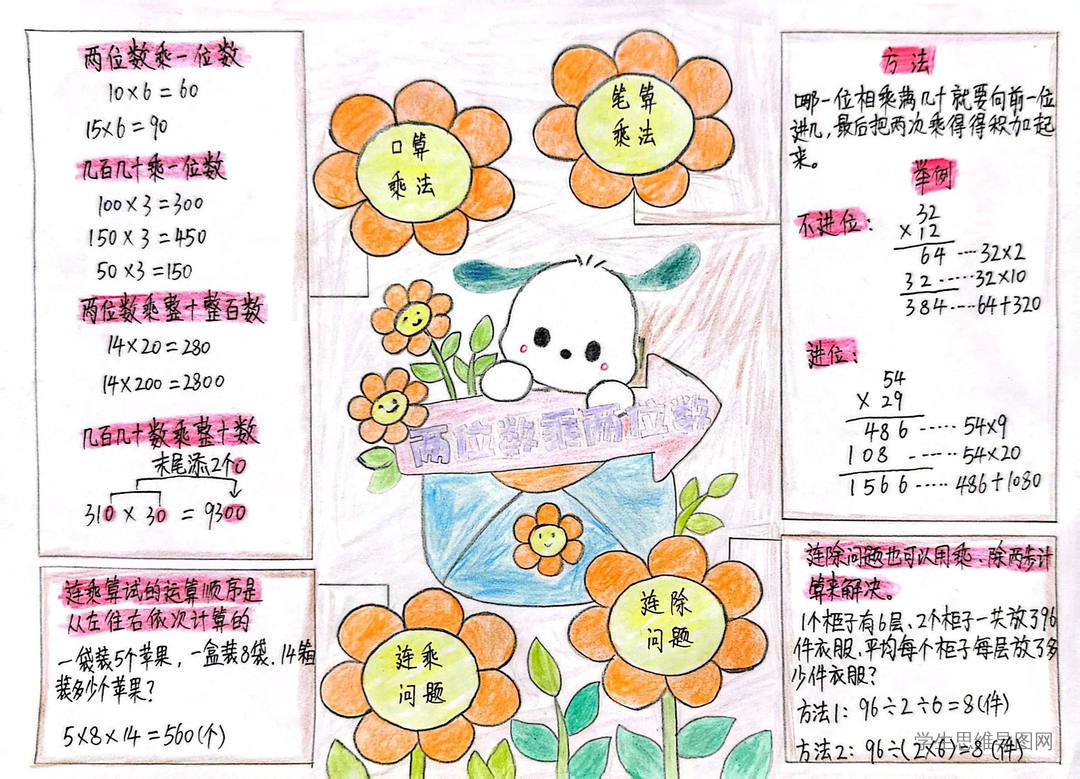 两位数乘一位数
10×6=60
15×6=90
几百几十乘一位数
100×3=300
150×3=450
50×3=150
两位数乘整十整百数
14×20=280
14×200=2800
几百几十数乘整十数
末尾添2个0
310×30=9300
连乘算试的运算顺序是
从左往右依次计算的
一袋装5个苹果,一盒装8袋.14箱
装多少个苹果?
5×8×14=560(个)
口算
乘法
笔算
乘法
两位数乘两位数
连乘
问题
连除
问题
方法
哪一位相乘满几十就要向前一位
进几,最后把两次乘得得积加起
来。
举例
不进位:
32
×12
64----32×2
32-----32×10
384----64+320
进位:
54
×29
486-----54×9
108-----54×20
1566-----486+1080
连除问题也可以用乘、除两步计
算来解决。
1个柜子有6层、2个柜子一共放了96
件衣服.平均每个柜子每层放了多
少件衣服?
方法1:96÷2÷6=8(件)
方法2:96÷(2×6)=8(件)
学生思维导图网